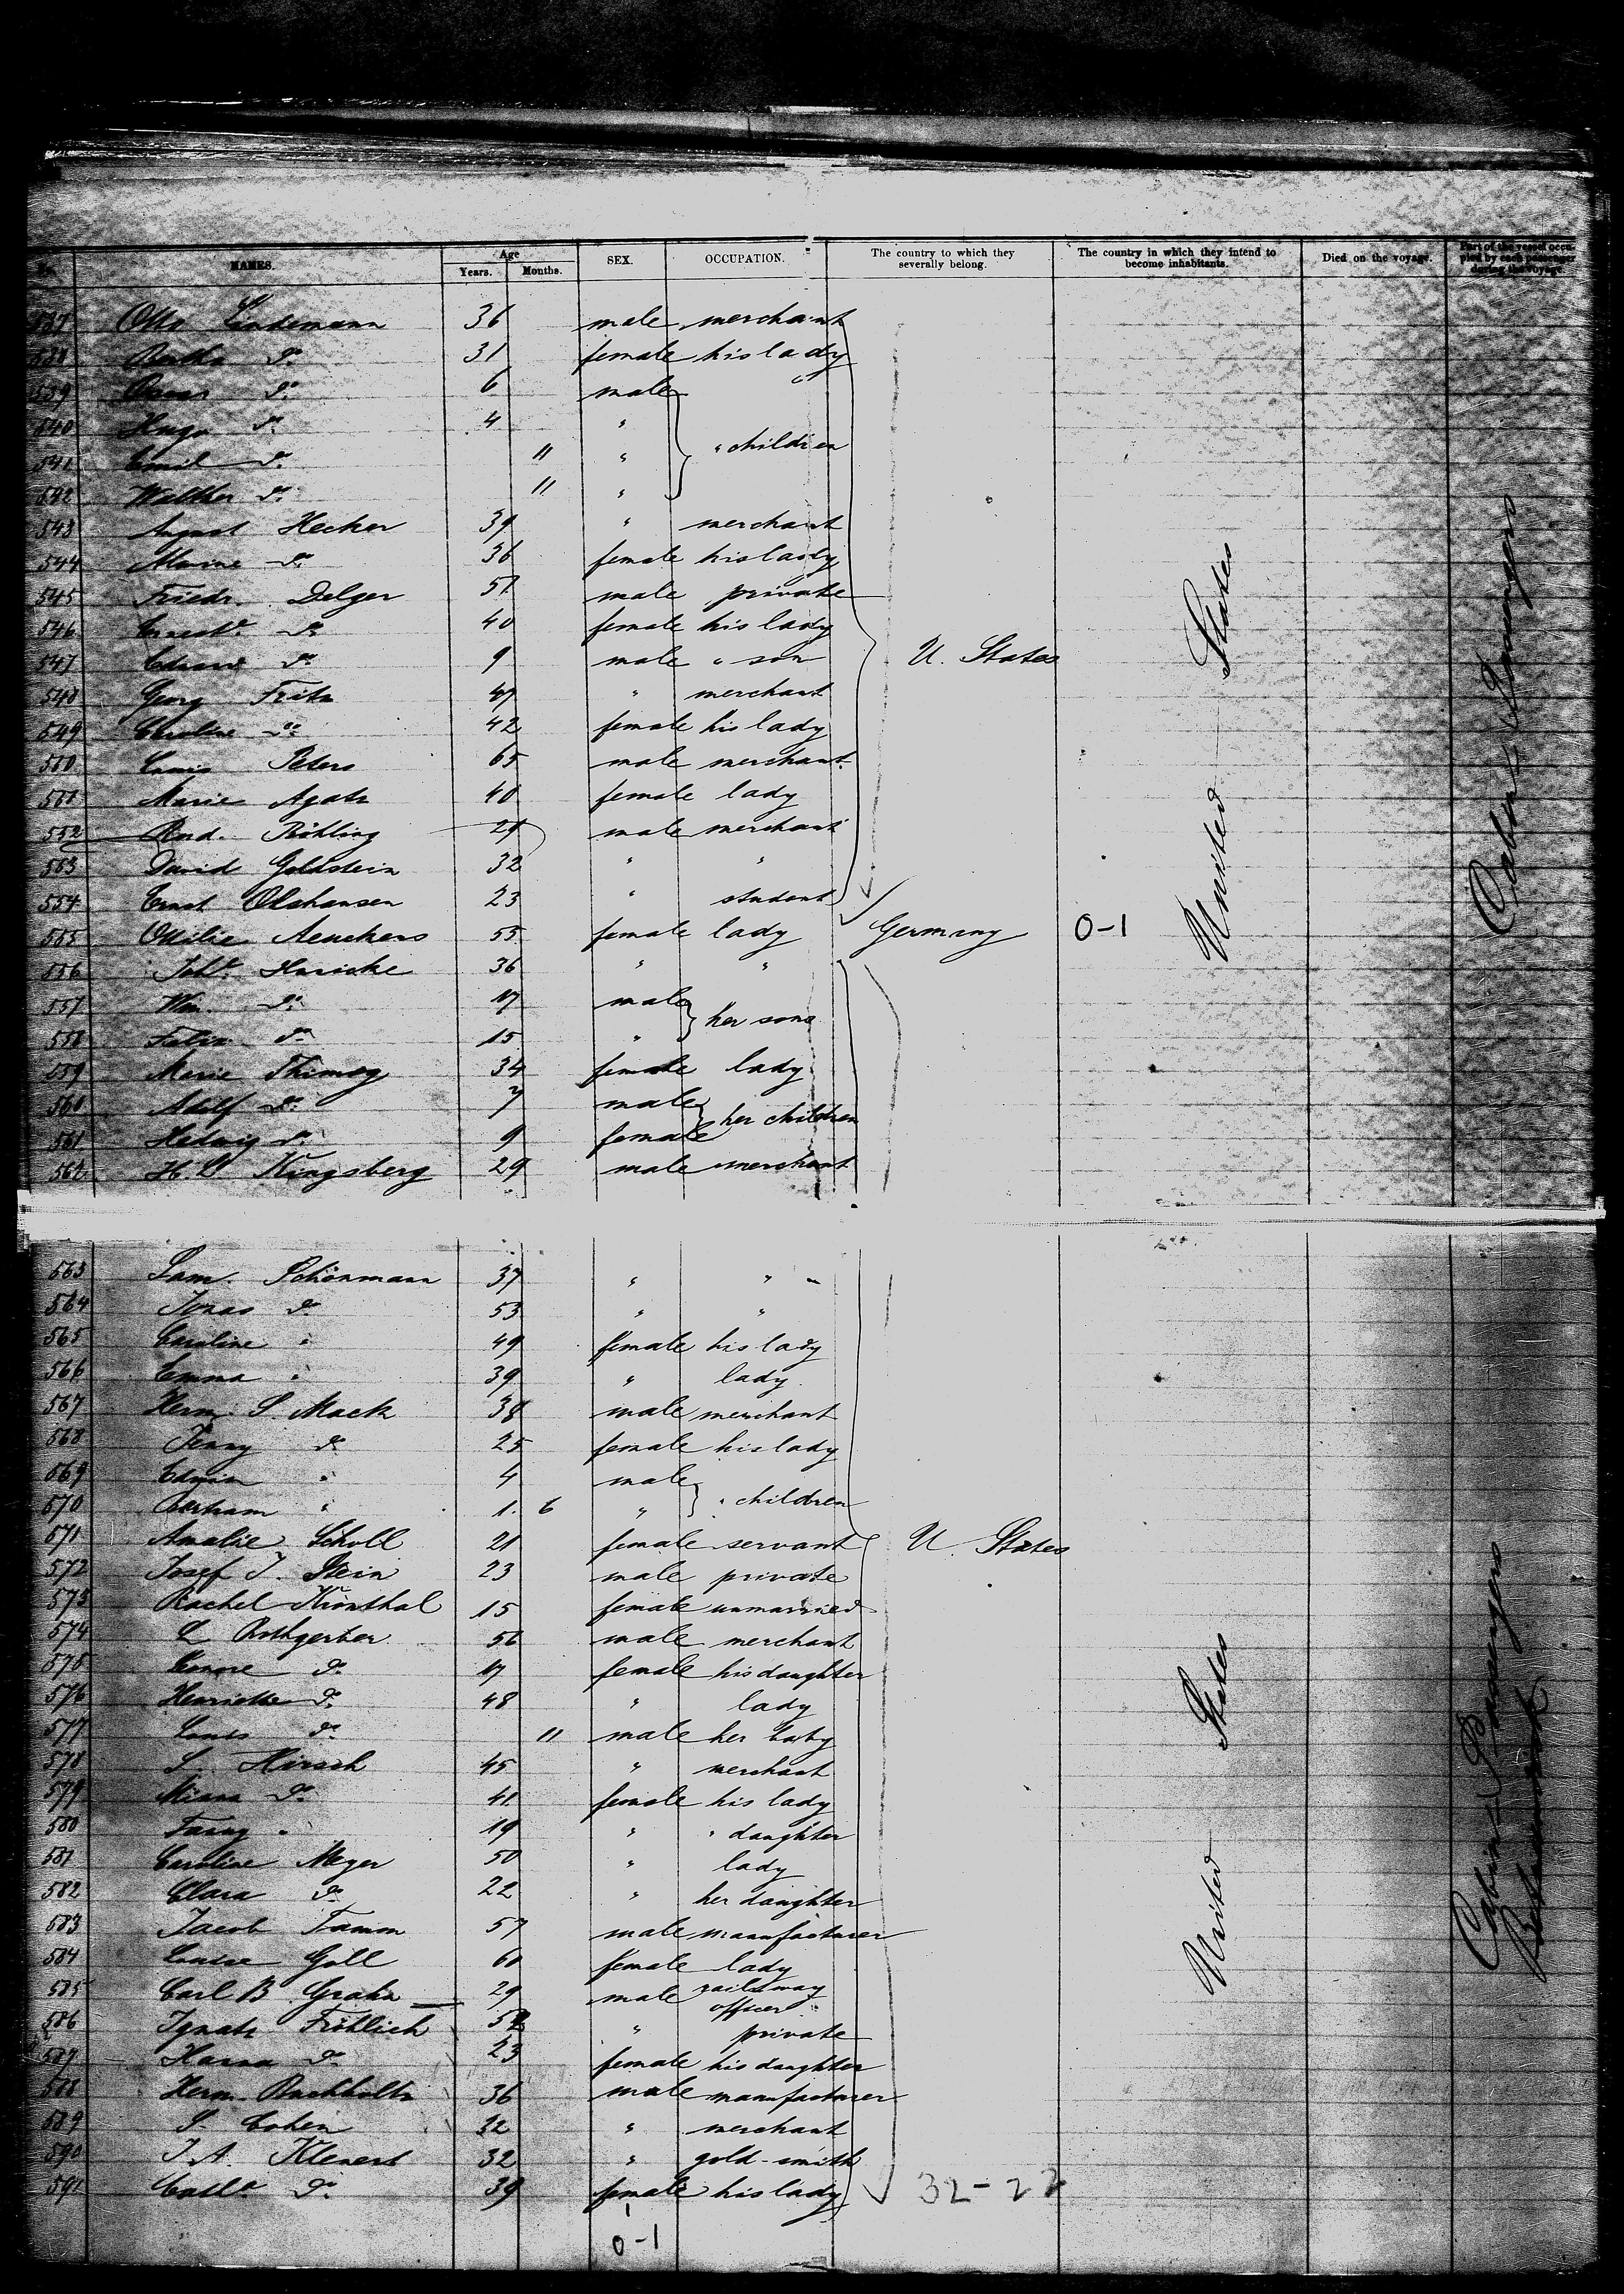 No. NAMES. Age Years. Months. SEX. OCCUPATION. The country to which they severally belong. The country in which they intend to become inhabitants. Died on the voyage. Part of the vessel occupied by each passenger during the voyage.
537 Otto Lindemann 36 male merchant
538 Bertha do 31 female his lady
539 Oscar do 6 male "
540 Hugo do 4 "
541 Emil do 11 " " children
542 Walther do 11 "
543 August Hecker 39 " merchant
544 do 36 female his lady
545 Friedr. Delger 57 male private
546 Ernest. do 40 female his lady
547 Edward do 9 male " son U. States
548 Georg Fritz 47 " merchant
549 Caroline do 42 female his lady
550 Louis Peters 65 male merchant
551 Marie Agatz 40 female lady
552 Rud. Röhling 29 male merchant
553 David Goldstein 32 " "
554 Ernst Olshausen 23 " student
555 Ottilie 55 female lady Germany 0-1
556 Joh. 36 " "
557 Wm. do 17 male her sons
558 Felix do 15 "
559 Marie Thimog 34 female lady
560 Adolf do 7 male her children
561 Hedwig do 9 female
562 Kingsberg 29 male merchant
United States
Cabin Passengers
563 Sam. Schönmann 37 " "
564 Jonas do 53 " "
565 Caroline " 49 female his lady
566 Emma " 39 " lady
567 Herm. S. Mack 38 male merchant
568 Jenny do 25 female his lady
569 Edwin " 4 male
570 Bertram " 1. 6 " " children
571 Amalie Scholl 21 female servant U. States
572 Josef J. Stein 23 male private
573 Rachel Kronthal 15 female unmarried
574 L Rothgerber 56 male merchant
575 Lenore do 17 female his daughter
576 Henriette do 48 " lady
577 Louis do 11 male her baby
578 S. Hirsch 45 " merchant
579 Minna do 41 female his lady
580 Fanny " 19 " " daughter
581 Caroline Meyer 50 " lady
582 Clara do 22 " her daughter
583 Jacob Tamm 57 male manufacturer
584 Louise Goll 60 female lady
585 Carl B. Grahn 29 male railway officer
586 Ignatz Fröhlich 52 " private
587 Hanna do 23 female his daughter
588 Herm. Buchholtz 36 male manufacturer
589 S. Cohen 32 " merchant
590 J. A. Klenert 32 " gold-smith
591 Cath. do 39 female his lady 32-22
0-1
United States
Cabin Passengers